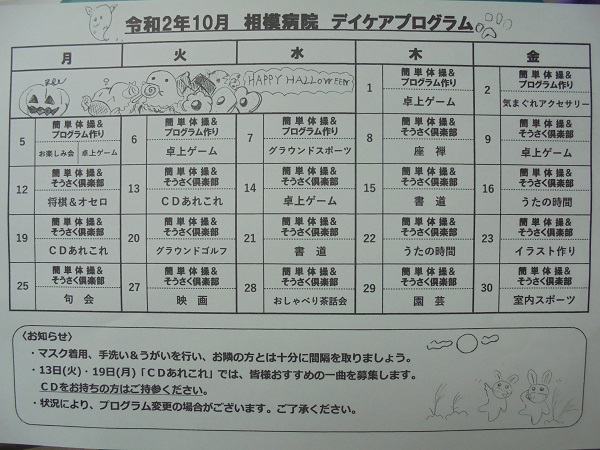 令和2年10月 相模病院 デイケアプログラム
月 火 水 木 金
HAPPY HALLOWEEN
1 簡単体操&プログラム作り 卓上ゲーム
2 簡単体操&そうさく倶楽部 気まぐれアクセサリー
5 簡単体操&プログラム作り お楽しみ会 卓上ゲーム
6 簡単体操&プログラム作り 卓上ゲーム
7 簡単体操&プログラム作り グラウンドスポーツ
8 簡単体操&そうさく倶楽部 座禅
9 簡単体操&そうさく倶楽部 卓上ゲーム
12 簡単体操&そうさく倶楽部 将棋&オセロ
13 簡単体操&そうさく倶楽部 CDあれこれ
14 簡単体操&そうさく倶楽部 卓上ゲーム
15 簡単体操&そうさく倶楽部 書道
16 簡単体操&そうさく倶楽部 うたの時間
19 簡単体操&そうさく倶楽部 CDあれこれ
20 簡単体操&そうさく倶楽部 グラウンドゴルフ
21 簡単体操&そうさく倶楽部 書道
22 簡単体操&そうさく倶楽部 うたの時間
23 簡単体操&そうさく倶楽部 イラスト作り
25 簡単体操&そうさく倶楽部 句会
27 簡単体操&そうさく倶楽部 映画
28 簡単体操&そうさく倶楽部 おしゃべり茶話会
29 簡単体操&そうさく倶楽部 園芸
30 簡単体操&そうさく倶楽部 室内スポーツ
〈お知らせ〉
・マスク着用、手洗い&うがいを行い、お隣の方とは十分に間隔を取りましょう。
・13日(火)・19日(月)「CDあれこれ」では、皆様おすすめの一曲を募集します。
CDをお持ちの方はご持参ください。
・状況により、プログラム変更の場合がございます。ご了承ください。